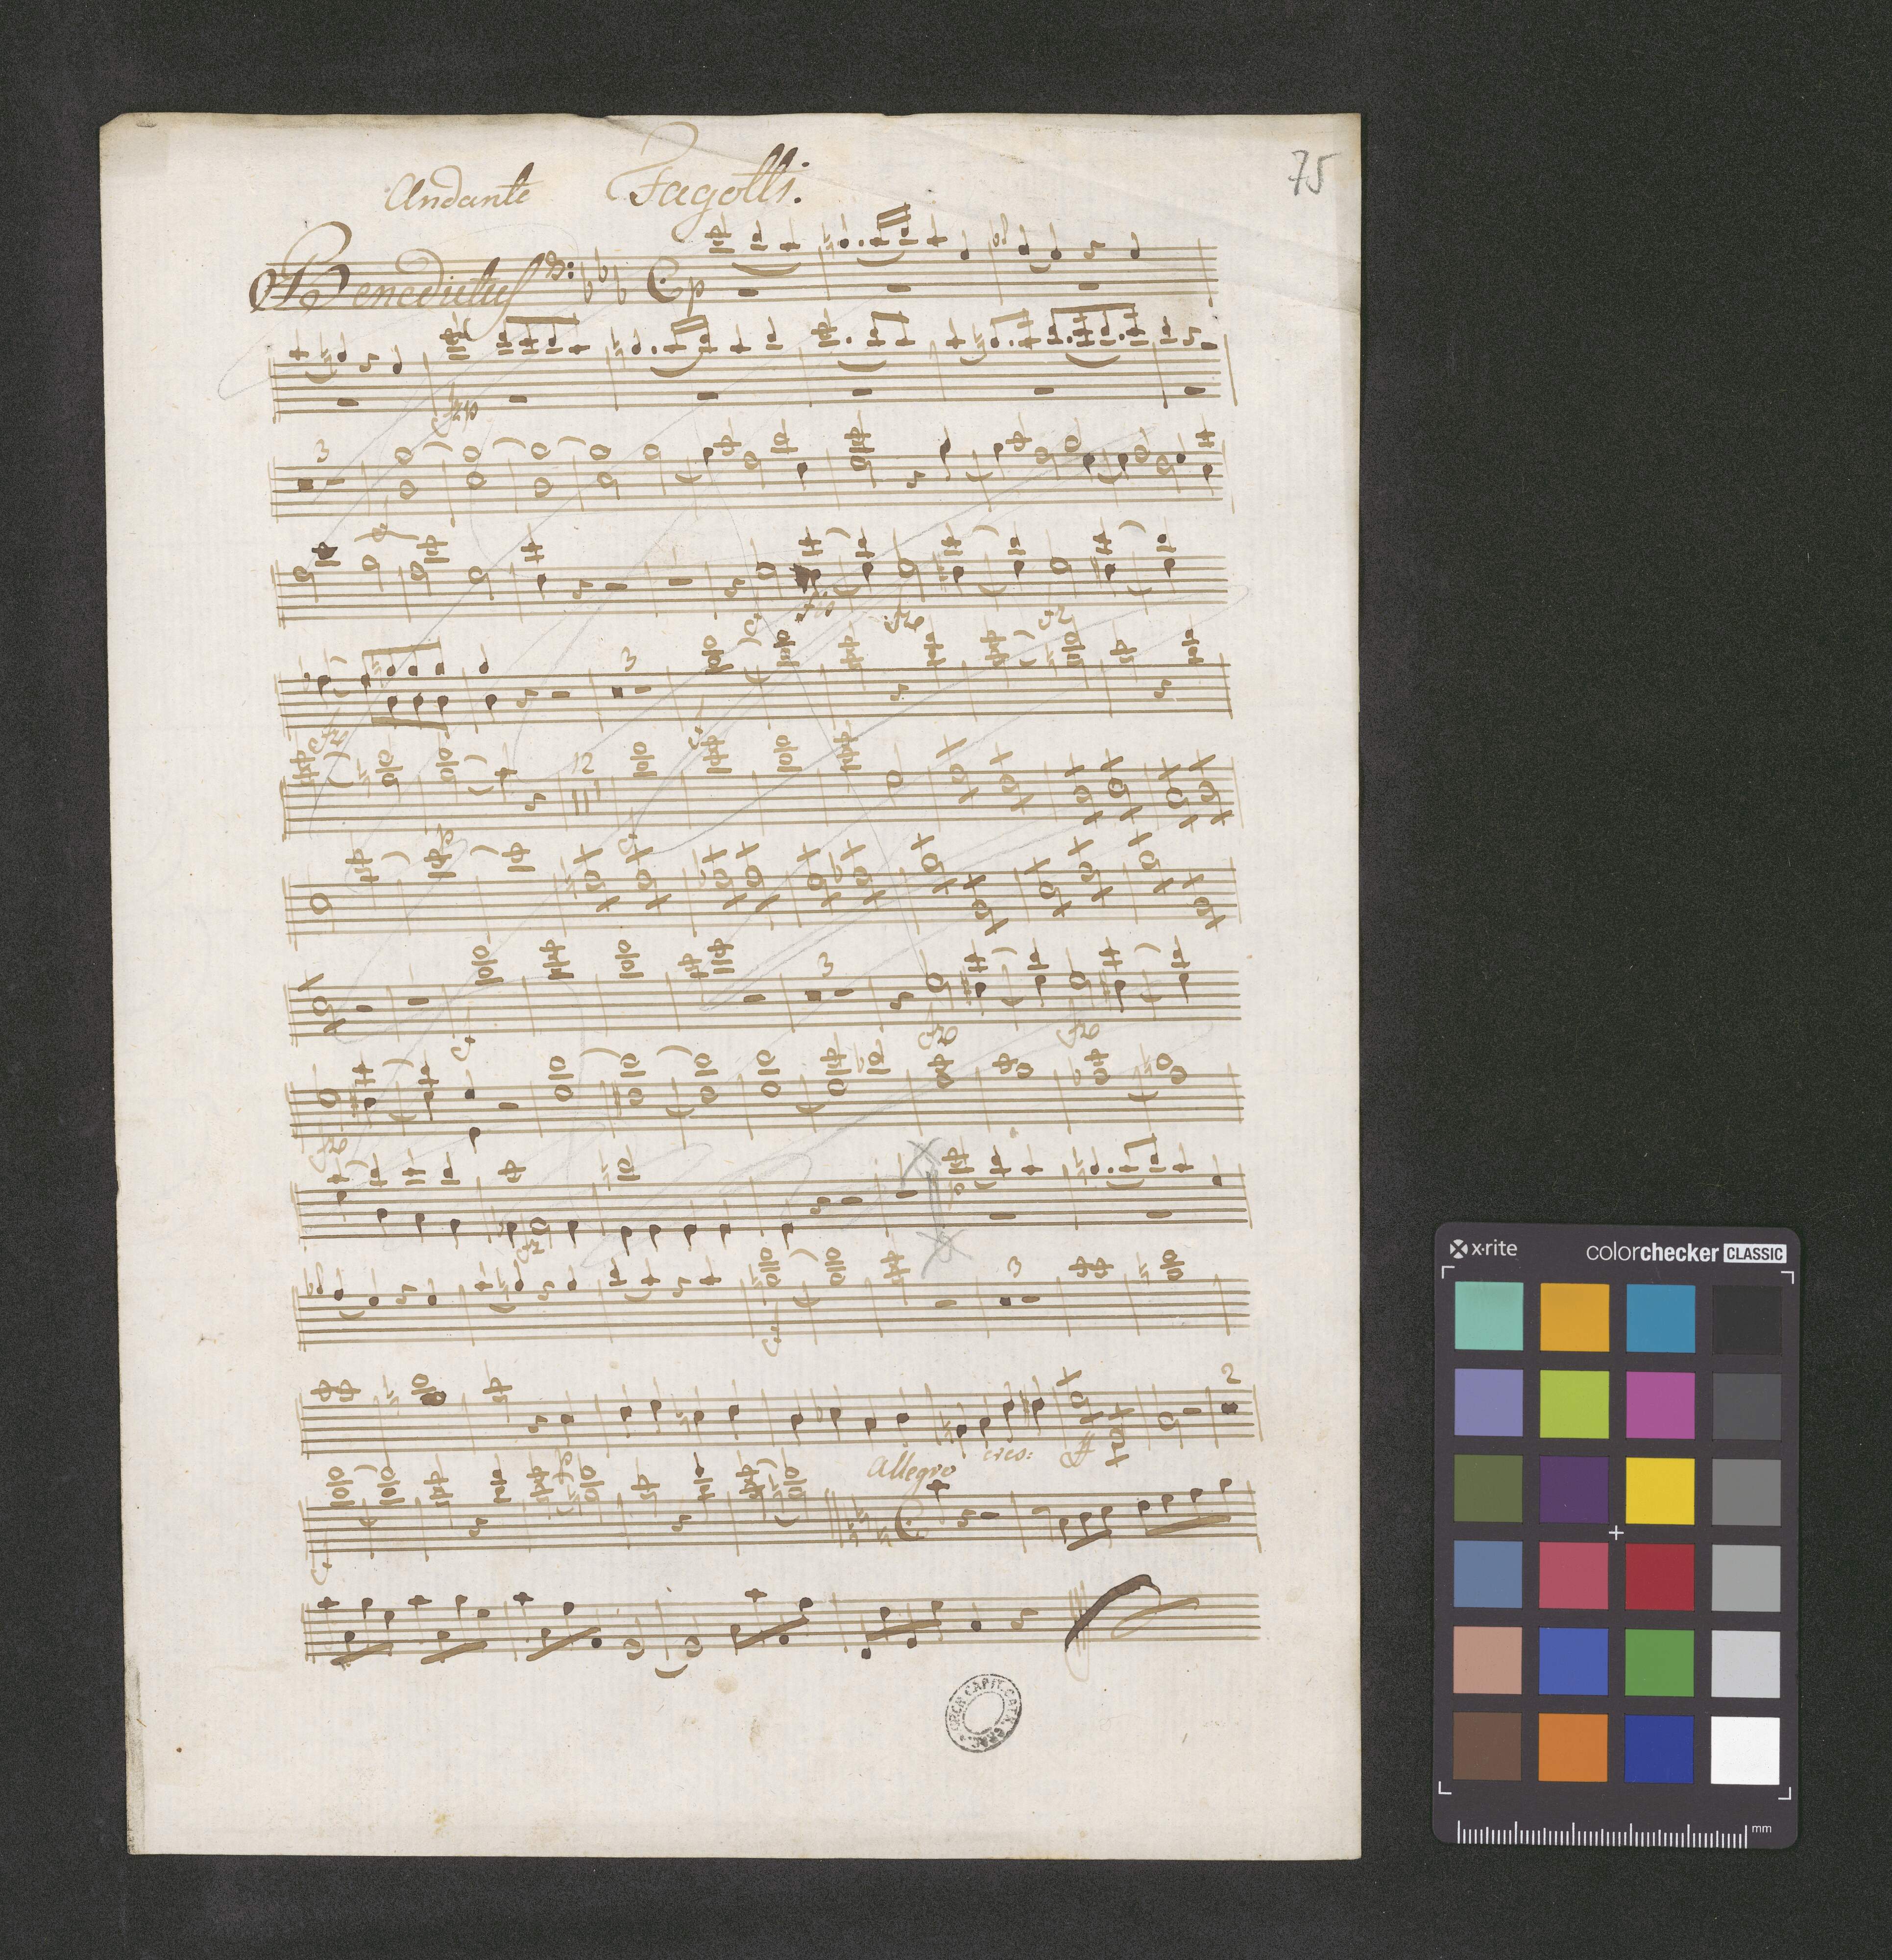 75
Andante Fagotti.
Benedictus
p
fzp
3
3
12
3
3
Allegro cres: ff
2
x-rite colorchecker CLASSIC
mm